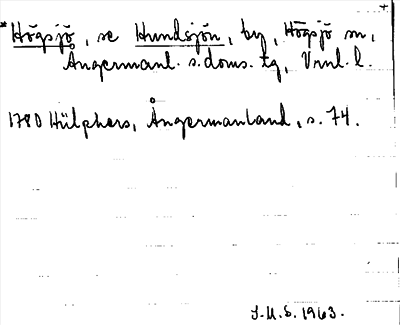 *Högsjö, se Hundsjön, by, Högsjö sn,
Ångermanl. s. doms. tg, Vrnl. l.
1780 Hülphers, Ångermanland, s. 74.
S.M.S. 1963.